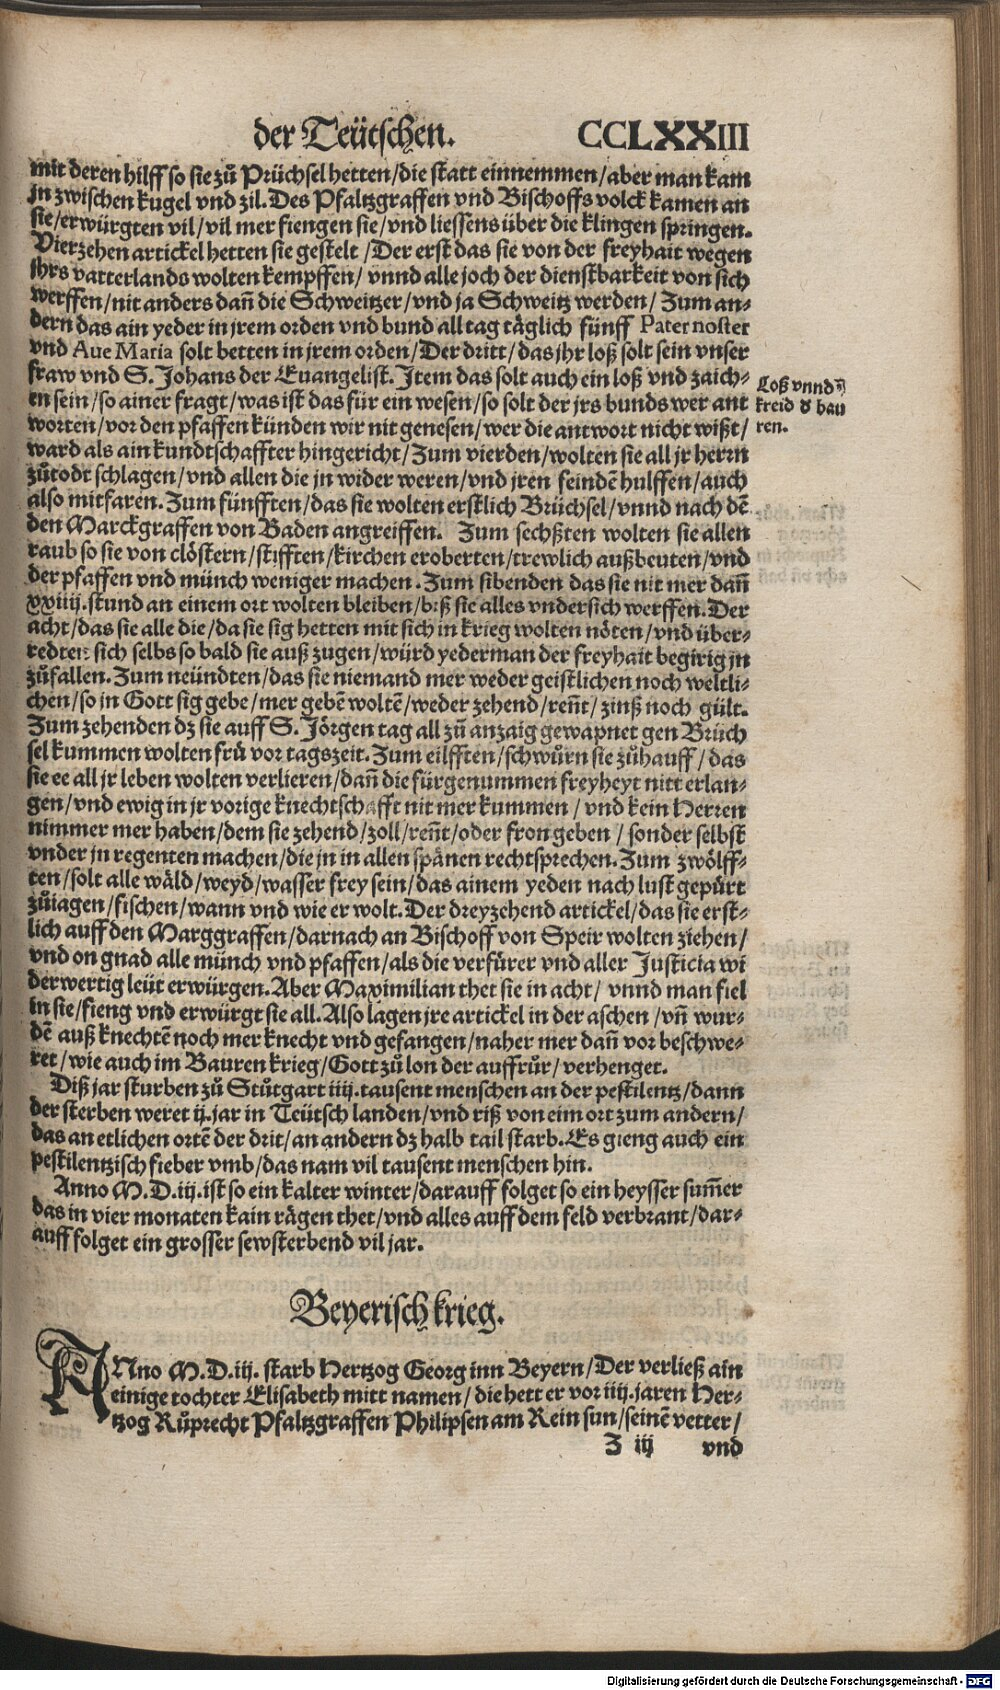 der Teütschen. CCLXXIII
mit deren hilff so sie zů Prüchsel hetten/die statt einnemmen/aber man kam
jn zwischen kugel vnd zil. Des Pfaltzgraffen vnd Bischoffs volck kamen an
sie/erwürgten vil/vil mer fiengen sie/vnd liessens über die klingen springen.
Vierzehen artickel hetten sie gestelt/Der erst das sie von der freyhait wegen
jhrs vatterlands wolten kempffen/vnnd alle joch der dienstbarkeit von sich
werffen/nit anders dañ die Schweitzer/vnd ja Schweitz werden/Zum an-
dern das ain yeder in jrem orden vnd bund all tag täglich fünff Pater noster
vnd Aue Maria solt betten in jrem orden/Der dritt/das jhr loß solt sein vnser
fraw vnd S. Johans der Euangelist. Item das solt auch ein loß vnd zaich-
en sein/so ainer fragt/was ist das für ein wesen/so solt der jrs bunds wer ant
worten/vor den pfaffen künden wir nit genesen/wer die antwort nicht wißt/
ward als ain kundtschaffter hingericht/Zum vierden/wolten sie all jr herrn
zůtodt schlagen/vnd allen die jn wider weren/vnd jren feindẽ hulffen/auch
also mitfaren. Zum fünfften/das sie wolten erstlich Brüchsel/vnnd nach dẽ
den Marckgraffen von Baden angreiffen. Zum sechßten wolten sie allen
raub so sie von clöstern/stifften/kirchen eroberten/trewlich außbeuten/vnd
der pfaffen vnd münch weniger machen. Zum sibenden das sie nit mer dañ
xxiiij. stund an einem ort wolten bleiben/biß sie alles vndersich werffen. Der
acht/das sie alle die/da sie sig hetten mit sich in krieg wolten nöten/vnd über-
redten sich selbs so bald sie auß zugen/würd yederman der freyhait begirig jn
zůfallen. Zum neündten/das sie niemand mer weder geistlichen noch weltli-
chen/so in Gott sig gebe/mer gebẽ woltẽ/weder zehend/reñt/zinß noch gült.
Zum zehenden dz sie auff S. Jörgen tag all zů anzaig gewapnet gen Brüch
sel kummen wolten frü vor tagszeit. Zum eilfften/schwůrn sie zůhauff/das
sie ee all jr leben wolten verlieren/dañ die fürgenummen freyheyt nitt erlan-
gen/vnd ewig in jr vorige knechtschafft nit mer kummen/vnd kein Herren
nimmer mer haben/dem sie zehend/zoll/reñt/oder fron geben/sonder selbst
vnder jn regenten machen/die jn in allen spänen rechtsprechen. Zum zwölff-
ten/solt alle wäld/weyd/wasser frey sein/das ainem yeden nach lust gepürt
zůiagen/fischen/wann vnd wie er wolt. Der dreyzehend artickel/das sie erst-
lich auff den Marggraffen/darnach an Bischoff von Speir wolten ziehen/
vnd on gnad alle münch vnd pfaffen/als die verfürer vnd aller Justicia wi
derwertig leüt erwürgen. Aber Maximilian thet sie in acht/vnnd man fiel
in sie/fieng vnd erwürgt sie all. Also lagen jre artickel in der aschen/vñ wur-
dẽ auß knechtẽ noch mer knecht vnd gefangen/naher mer dañ vor beschwe-
ret/wie auch im Bauren krieg/Gott zů lon der auffrůr/verhenget.
Diß jar sturben zů Stůtgart iiij. tausent menschen an der pestilentz/dann
der sterben weret ij. jar in Teütsch landen/vnd riß von eim ort zum andern/
das an etlichen ortẽ der drit/an andern dz halb tail starb. Es gieng auch ein
pestilentzisch fieber vmb/das nam vil tausent menschen hin.
Anno M.D.iij. ist so ein kalter winter/darauff folget so ein heysser sum̃er
das in vier monaten kain rägen thet/vnd alles auff dem feld verbrant/dar-
auff folget ein grosser sewsterbend vil jar.
Loß vnnd
kreid d bau
ren.
Beyerisch krieg.
ANno M.D.iij. starb Hertzog Georg inn Beyern/Der verließ ain
einige tochter Elisabeth mitt namen/die hett er vor iiij. jaren Her-
tzog Růprecht Pfaltzgraffen Philipsen am Rein sun/seinẽ vetter/
Z iij vnd
Digitalisierung gefördert durch die Deutsche Forschungsgemeinschaft - DFG